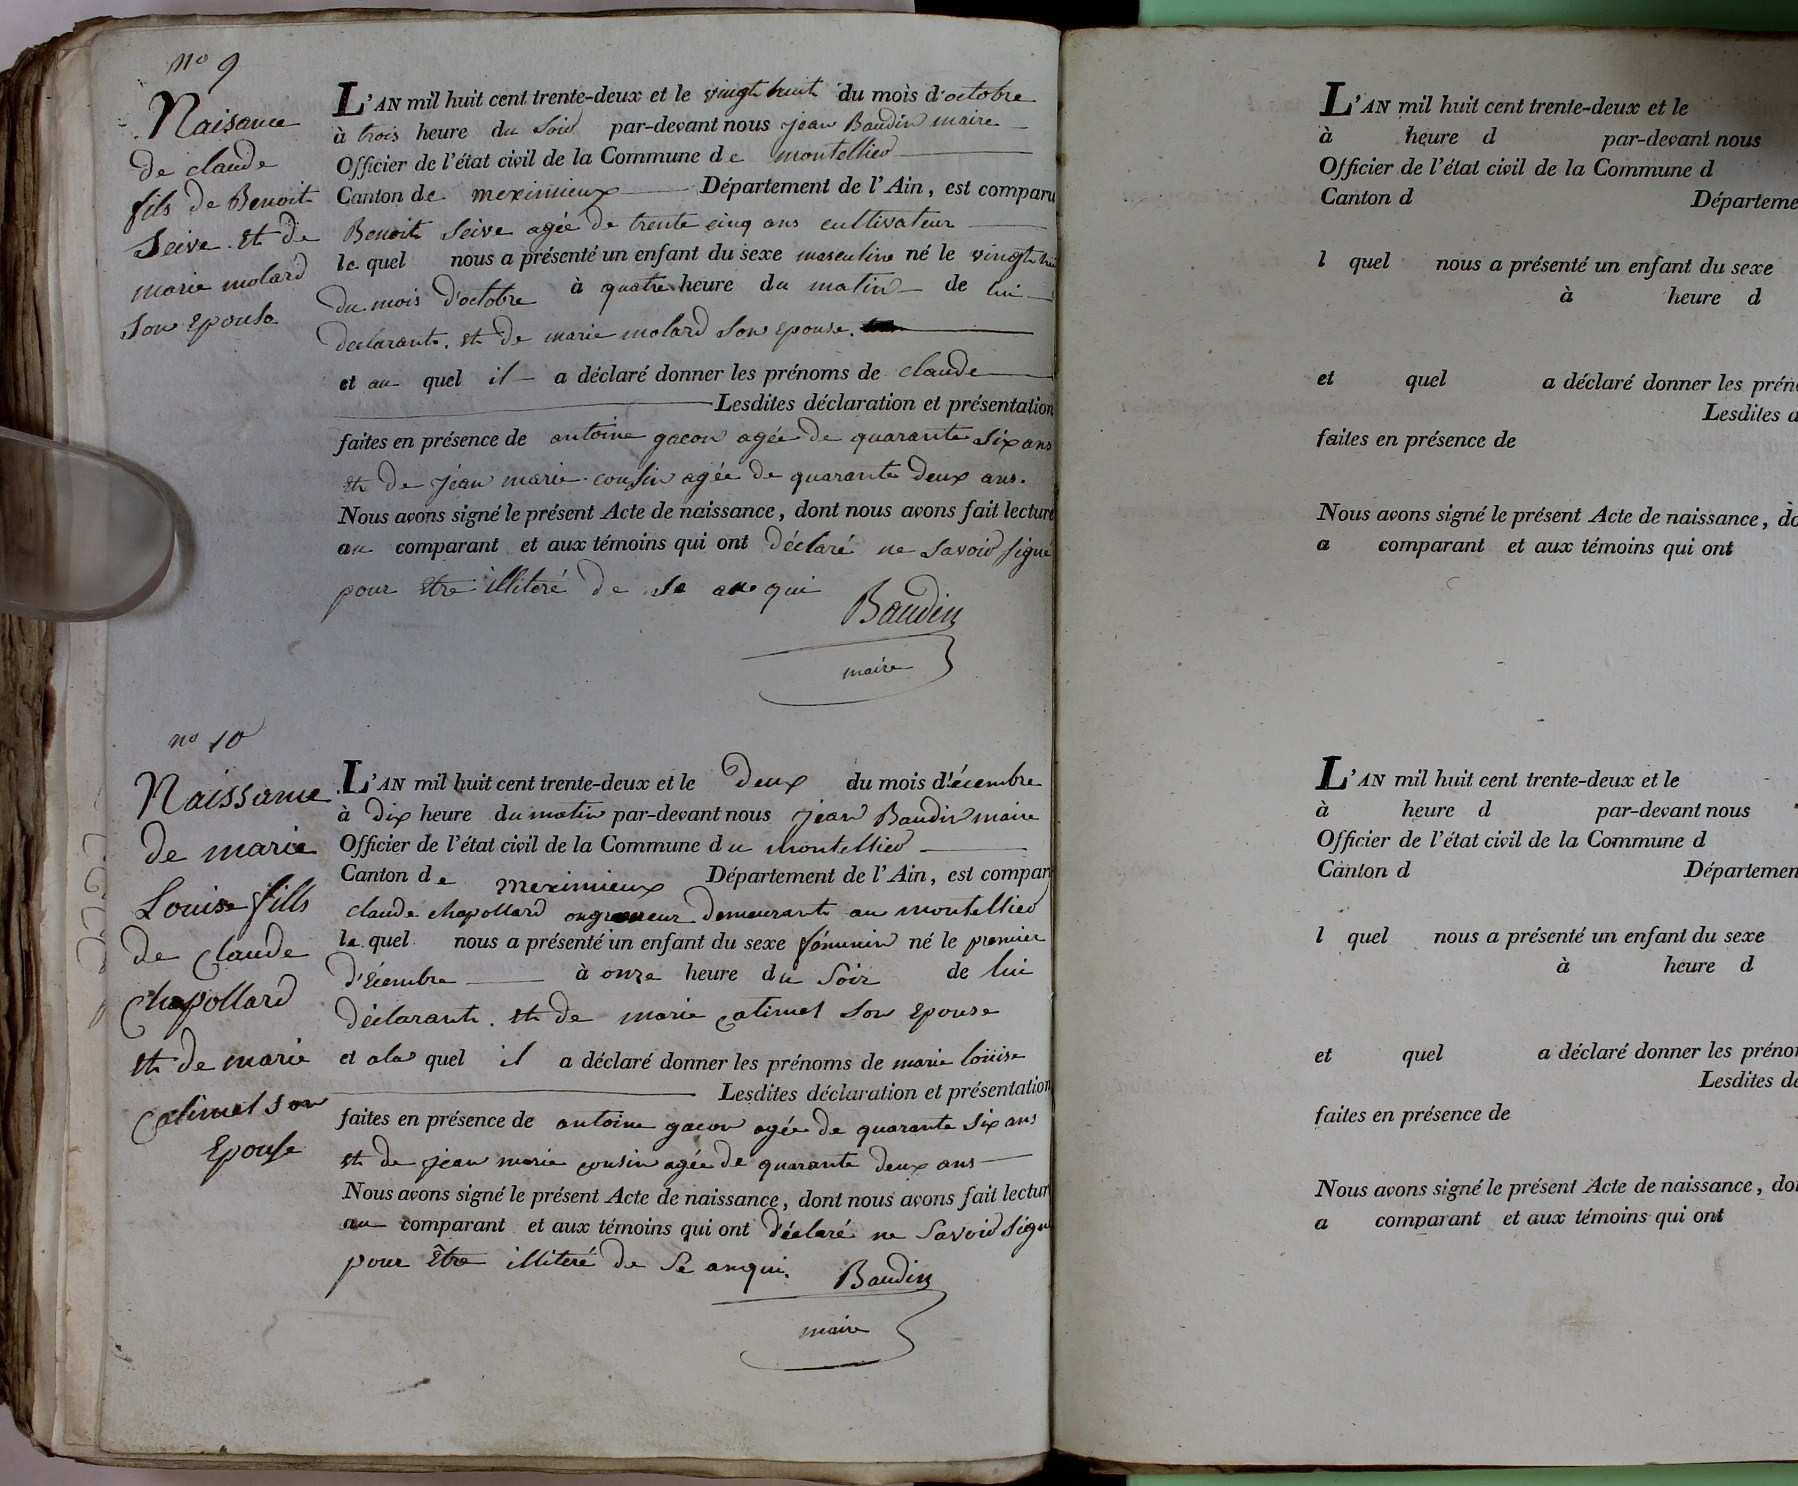 n° 9
Naisance
de claude
fils de Benoit
Seive et de
marie molard
son epouse
L'AN mil huit cent trente-deux et le vingt huit du mois d'octobre
à trois heure du soir par-devant nous jean Baudin maire
Officier de l'état civil de la Commune de montellier
Canton de meximieux Département de l'Ain, est comparu
Benoit Seive agée de trente cinq ans cultivateur
le quel nous a présenté un enfant du sexe masculine né le vingt
du mois d'octobre à quatre heure du matin de lui
declarant. et de marie molard son epouse.
et au quel il a déclaré donner les prénoms de claude
Lesdites déclaration et présentation
faites en présence de antoine gacon agée de quarante six ans
et de jean marie cousin agée de quarante deux ans.
Nous avons signé le présent Acte de naissance, dont nous avons fait lecture
au comparant et aux témoins qui ont déclaré ne savoir signé
pour etre illiteré de se qui
Baudin
maire
n° 10
Naissance
de marie
Louise fills
de Claude
Chapollard
et de marie
Catimel son
Epouse
L'AN mil huit cent trente-deux et le deux du mois d'écembre
à dix heure du matin par-devant nous jean Baudin maire
Officier de l'état civil de la Commune du montellier
Canton de meximieux Département de l'Ain, est compar
claude chapollard demeurant au montellier
le quel nous a présenté un enfant du sexe féminin né le premier
d'écembre à onze heure du soir de lui
déclarant. et de marie catimel son epouse
et ala quel il a déclaré donner les prénoms de marie louise
Lesdites déclaration et présentation
faites en présence de antoine gacon agée de quarante six ans
et de jean marie cousin agée de quarante deux ans
Nous avons signé le présent Acte de naissance, dont nous avons fait lectur
au comparant et aux témoins qui ont déclaré ne savoir signe
pour être illiteré de se anqui.
Baudin
maire
L'AN mil huit cent trente-deux et le
à heure d par-devant nous
Officier de l'état civil de la Commune d
Canton d Départeme
l quel nous a présenté un enfant du sexe
à heure d
et quel a déclaré donner les prén
Lesdites d
faites en présence de
Nous avons signé le présent Acte de naissance, do
a comparant et aux témoins qui ont
L'AN mil huit cent trente-deux et le
à heure d par-devant nous
Officier de l'état civil de la Commune d
Canton d Départemen
l quel nous a présenté un enfant du sexe
à heure d
et quel a déclaré donner les préno
Lesdites dé
faites en présence de
Nous avons signé le présent Acte de naissance, do
a comparant et aux témoins qui ont